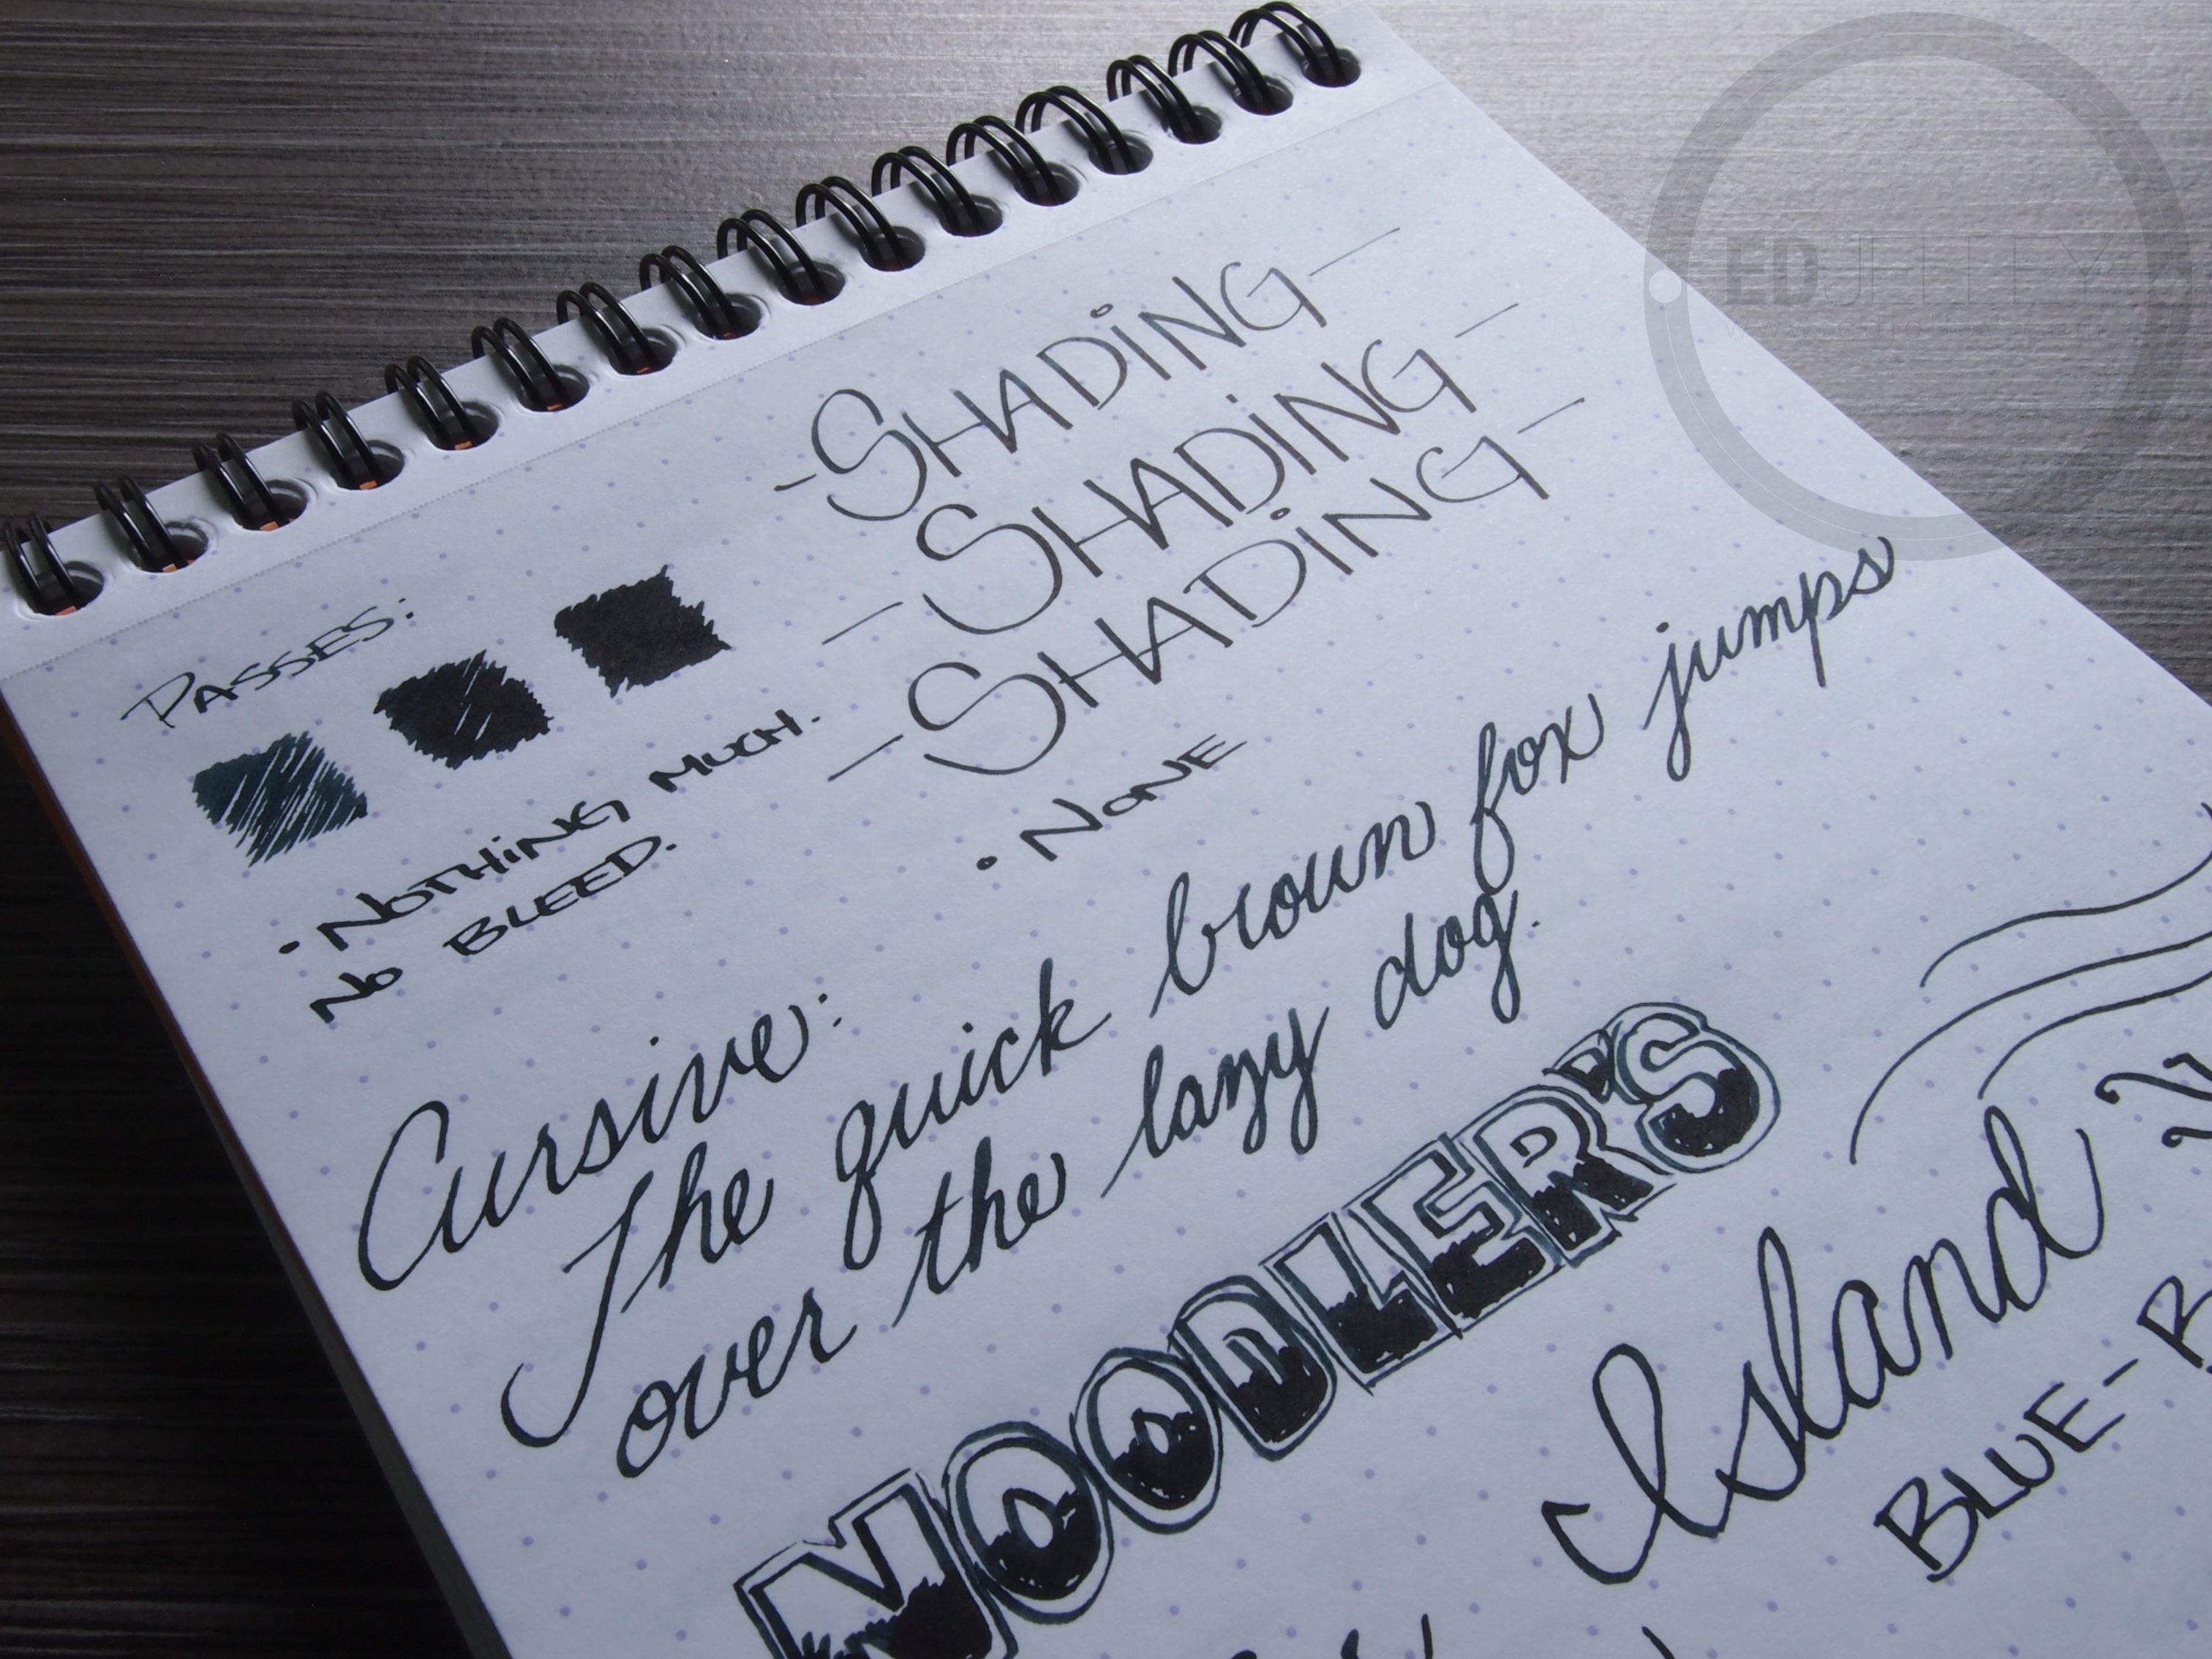 PASSES:
• NOTHING MUCH.
NO BLEED.
- SHADING -
- SHADING -
- SHADING -
• NONE
Cursive:
The quick brown fox jumps
over the lazy dog.
NOODLER'S
Island
BLUE-B
ED JELLEY